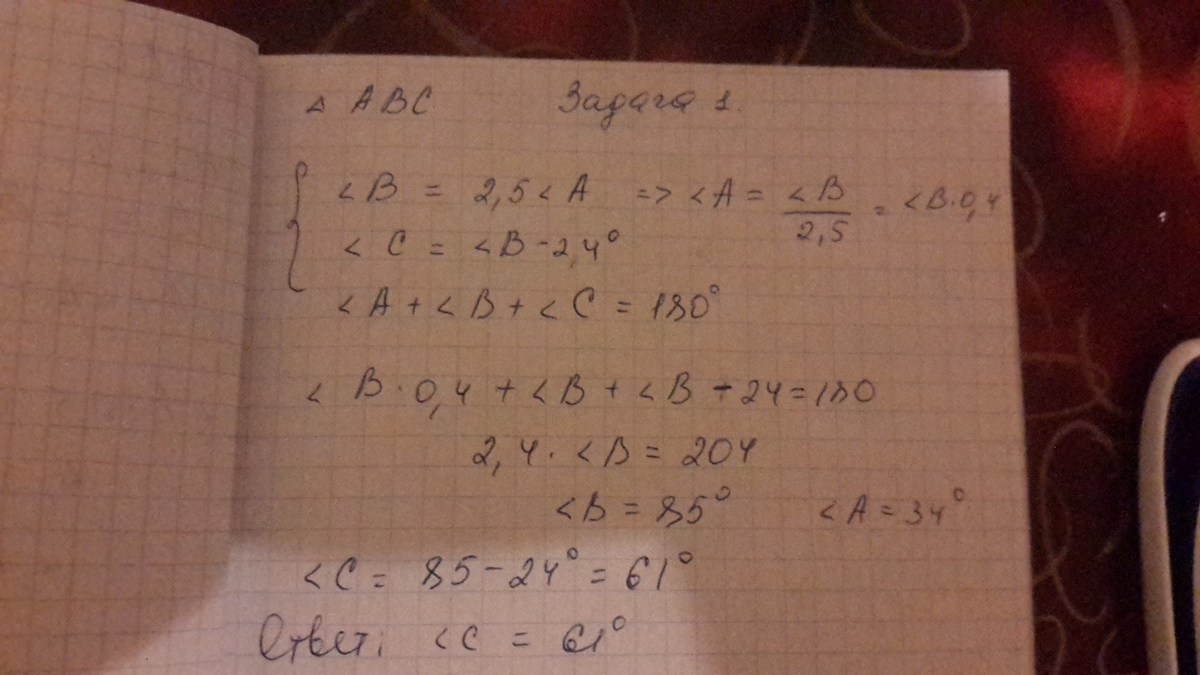 △ ABC Задача 1.
∠B = 2,5∠A => ∠A = ∠B/2,5 = ∠B·0,4
∠C = ∠B-2,4°
∠A + ∠B + ∠C = 180°
∠B·0,4 + ∠B + ∠B - 24 = 180
2,4·∠B = 204
∠B = 85° ∠A = 34°
∠C = 85-24° = 61°
Ответ: ∠C = 61°